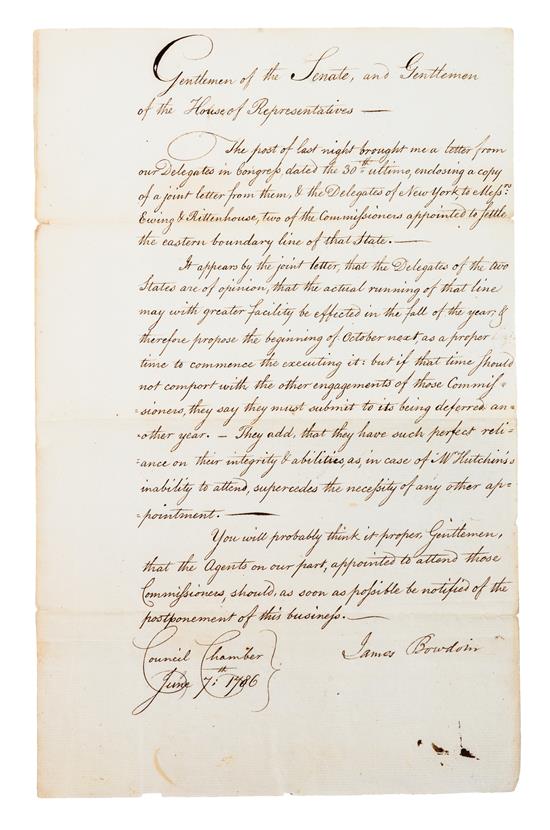 Gentlemen of the Senate, and Gentlemen
of the House of Representatives —
The post of last night brought me a letter from
our Delegates in Congress, dated the 30th ultimo, enclosing a copy
of a joint letter from them, & the Delegates of New York to Messrs
Ewing & Rittenhouse, two of the Commissioners appointed to settle
the eastern boundary line of that State. —
It appears by the joint letter, that the Delegates of the two
States are of opinion, that the actual running of that line
may with greater facility be effected in the fall of the year, &
therefore propose the beginning of October next, as a proper
time to commence the executing it: but if that time should
not comport with the other engagements of those Commis=
=sioners, they say they must submit to its being deferred an=
=other year. — They add, that they have such perfect reli=
=ance on their integrity & abilities, as, in case of Mr Hutchins's
inability to attend, supercedes the necessity of any other ap=
=pointment. —
You will probably think it proper, Gentlemen,
that the Agents on our part, appointed to attend those
Commissioners, should, as soon as possible be notified of the
postponement of this business. —
Council Chamber
June 7th 1786
James Bowdoin